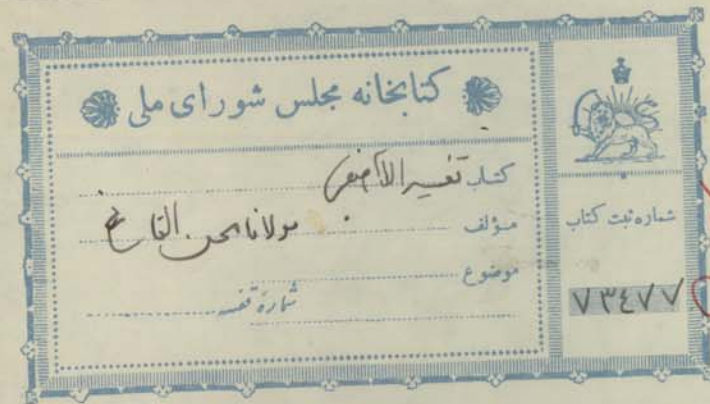 کتابخانه مجلس شورای ملی
کتاب تفسیر الاصفی
مؤلف مولانا محسن القا
موضوع
شماره قفسه
شماره ثبت کتاب
۷۳٤۷۷